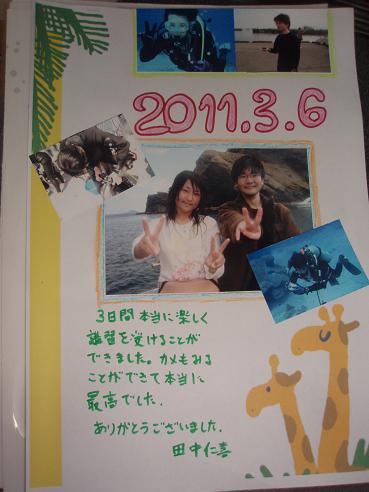 2011.3.6
3日間本当に楽しく
講習を受けることが
できました。カメもみる
ことができて本当に
最高でした.
ありがとうございました.
田中仁喜